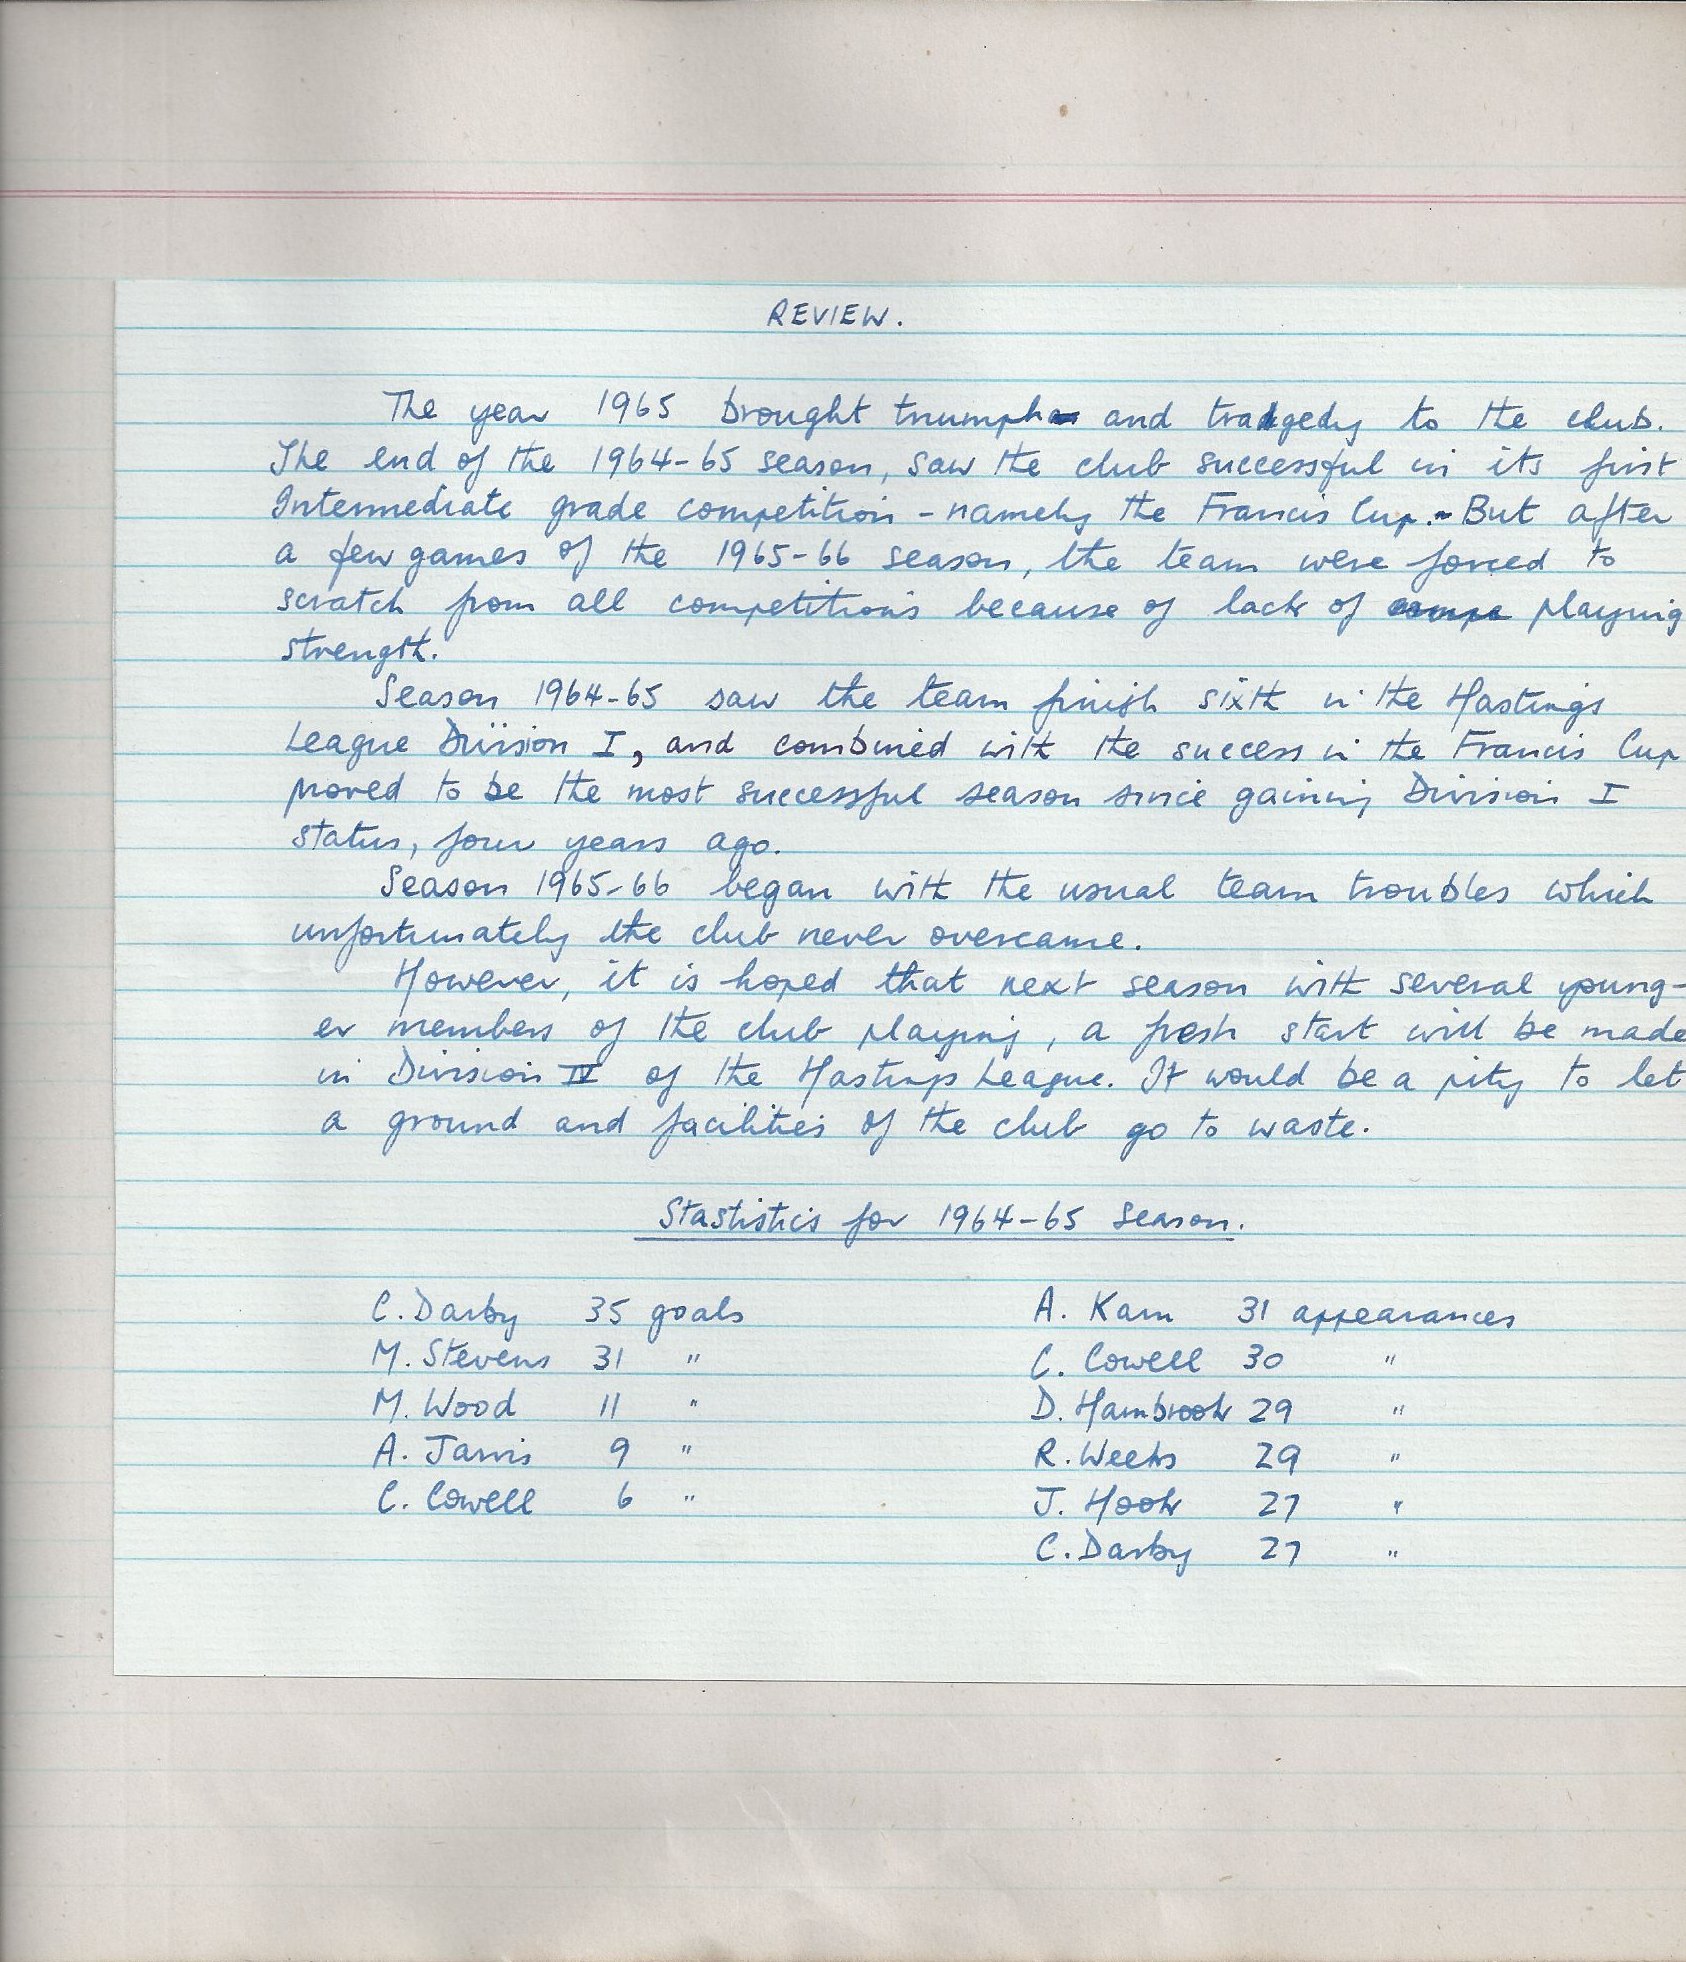 REVIEW.
The year 1965 brought triumph and tradgedy to the club.
The end of the 1964-65 season, saw the club successful in its first
Intermediate grade competition - namely the Francis Cup. - But after
a few games of the 1965-66 season, the team were forced to
scratch from all competitions because of lack of playing
strength.
Season 1964-65 saw the team finish sixth in the Hastings
League Division I, and combined with the success in the Francis Cup
proved to be the most successful season since gaining Division I
status, four years ago.
Season 1965-66 began with the usual team troubles which
unfortunately the club never overcame.
However, it is hoped that next season with several young-
er members of the club playing, a fresh start will be made
in Division IV of the Hastings League. It would be a pity to let
a ground and facilities of the club go to waste.
Stastistics for 1964-65 Season.
C. Darby 35 goals
M. Stevens 31 "
M. Wood 11 "
A. Jarvis 9 "
C. Cowell 6 "
A. Kam 31 appearances
C. Cowell 30 "
D. Hambrook 29 "
R. Weeks 29 "
J. Hook 27 "
C. Darby 27 "